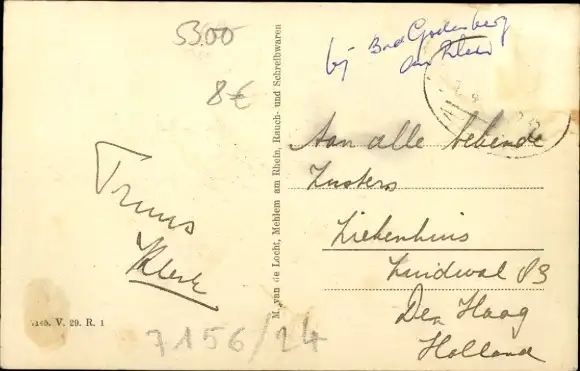 5300
8€
bij Bad Godesberg
am Rhein
Truus
Klerk
M. van de Locht, Mehlem am Rhein, Rauch- und Schreibwaren
Aan alle bekende
Zusters
Ziekenhuis
Zuidwal 83
Den Haag
Holland
V. 29. R. 1
7156/24